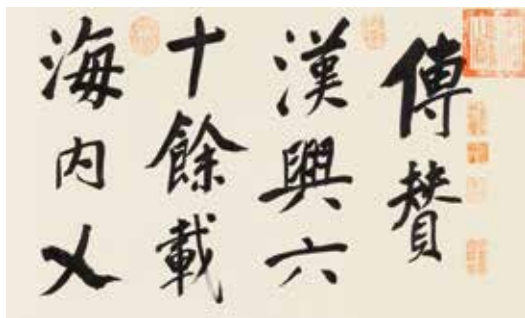 傳賛
漢興六
十餘載
海内乂